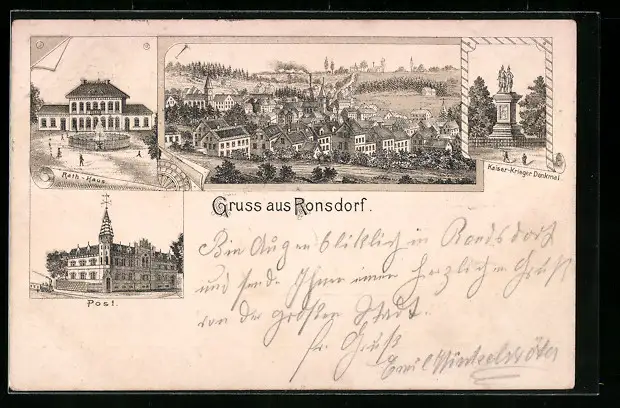 Rath-Haus.
Kaiser-Krieger Denkmal
Gruss aus Ronsdorf.
Post.
Bin Augenblicklich in Ronsdorf
und sende Ihnen einen herzlichen Gruß
von der großen Stadt.
fr. Gruß
Emil